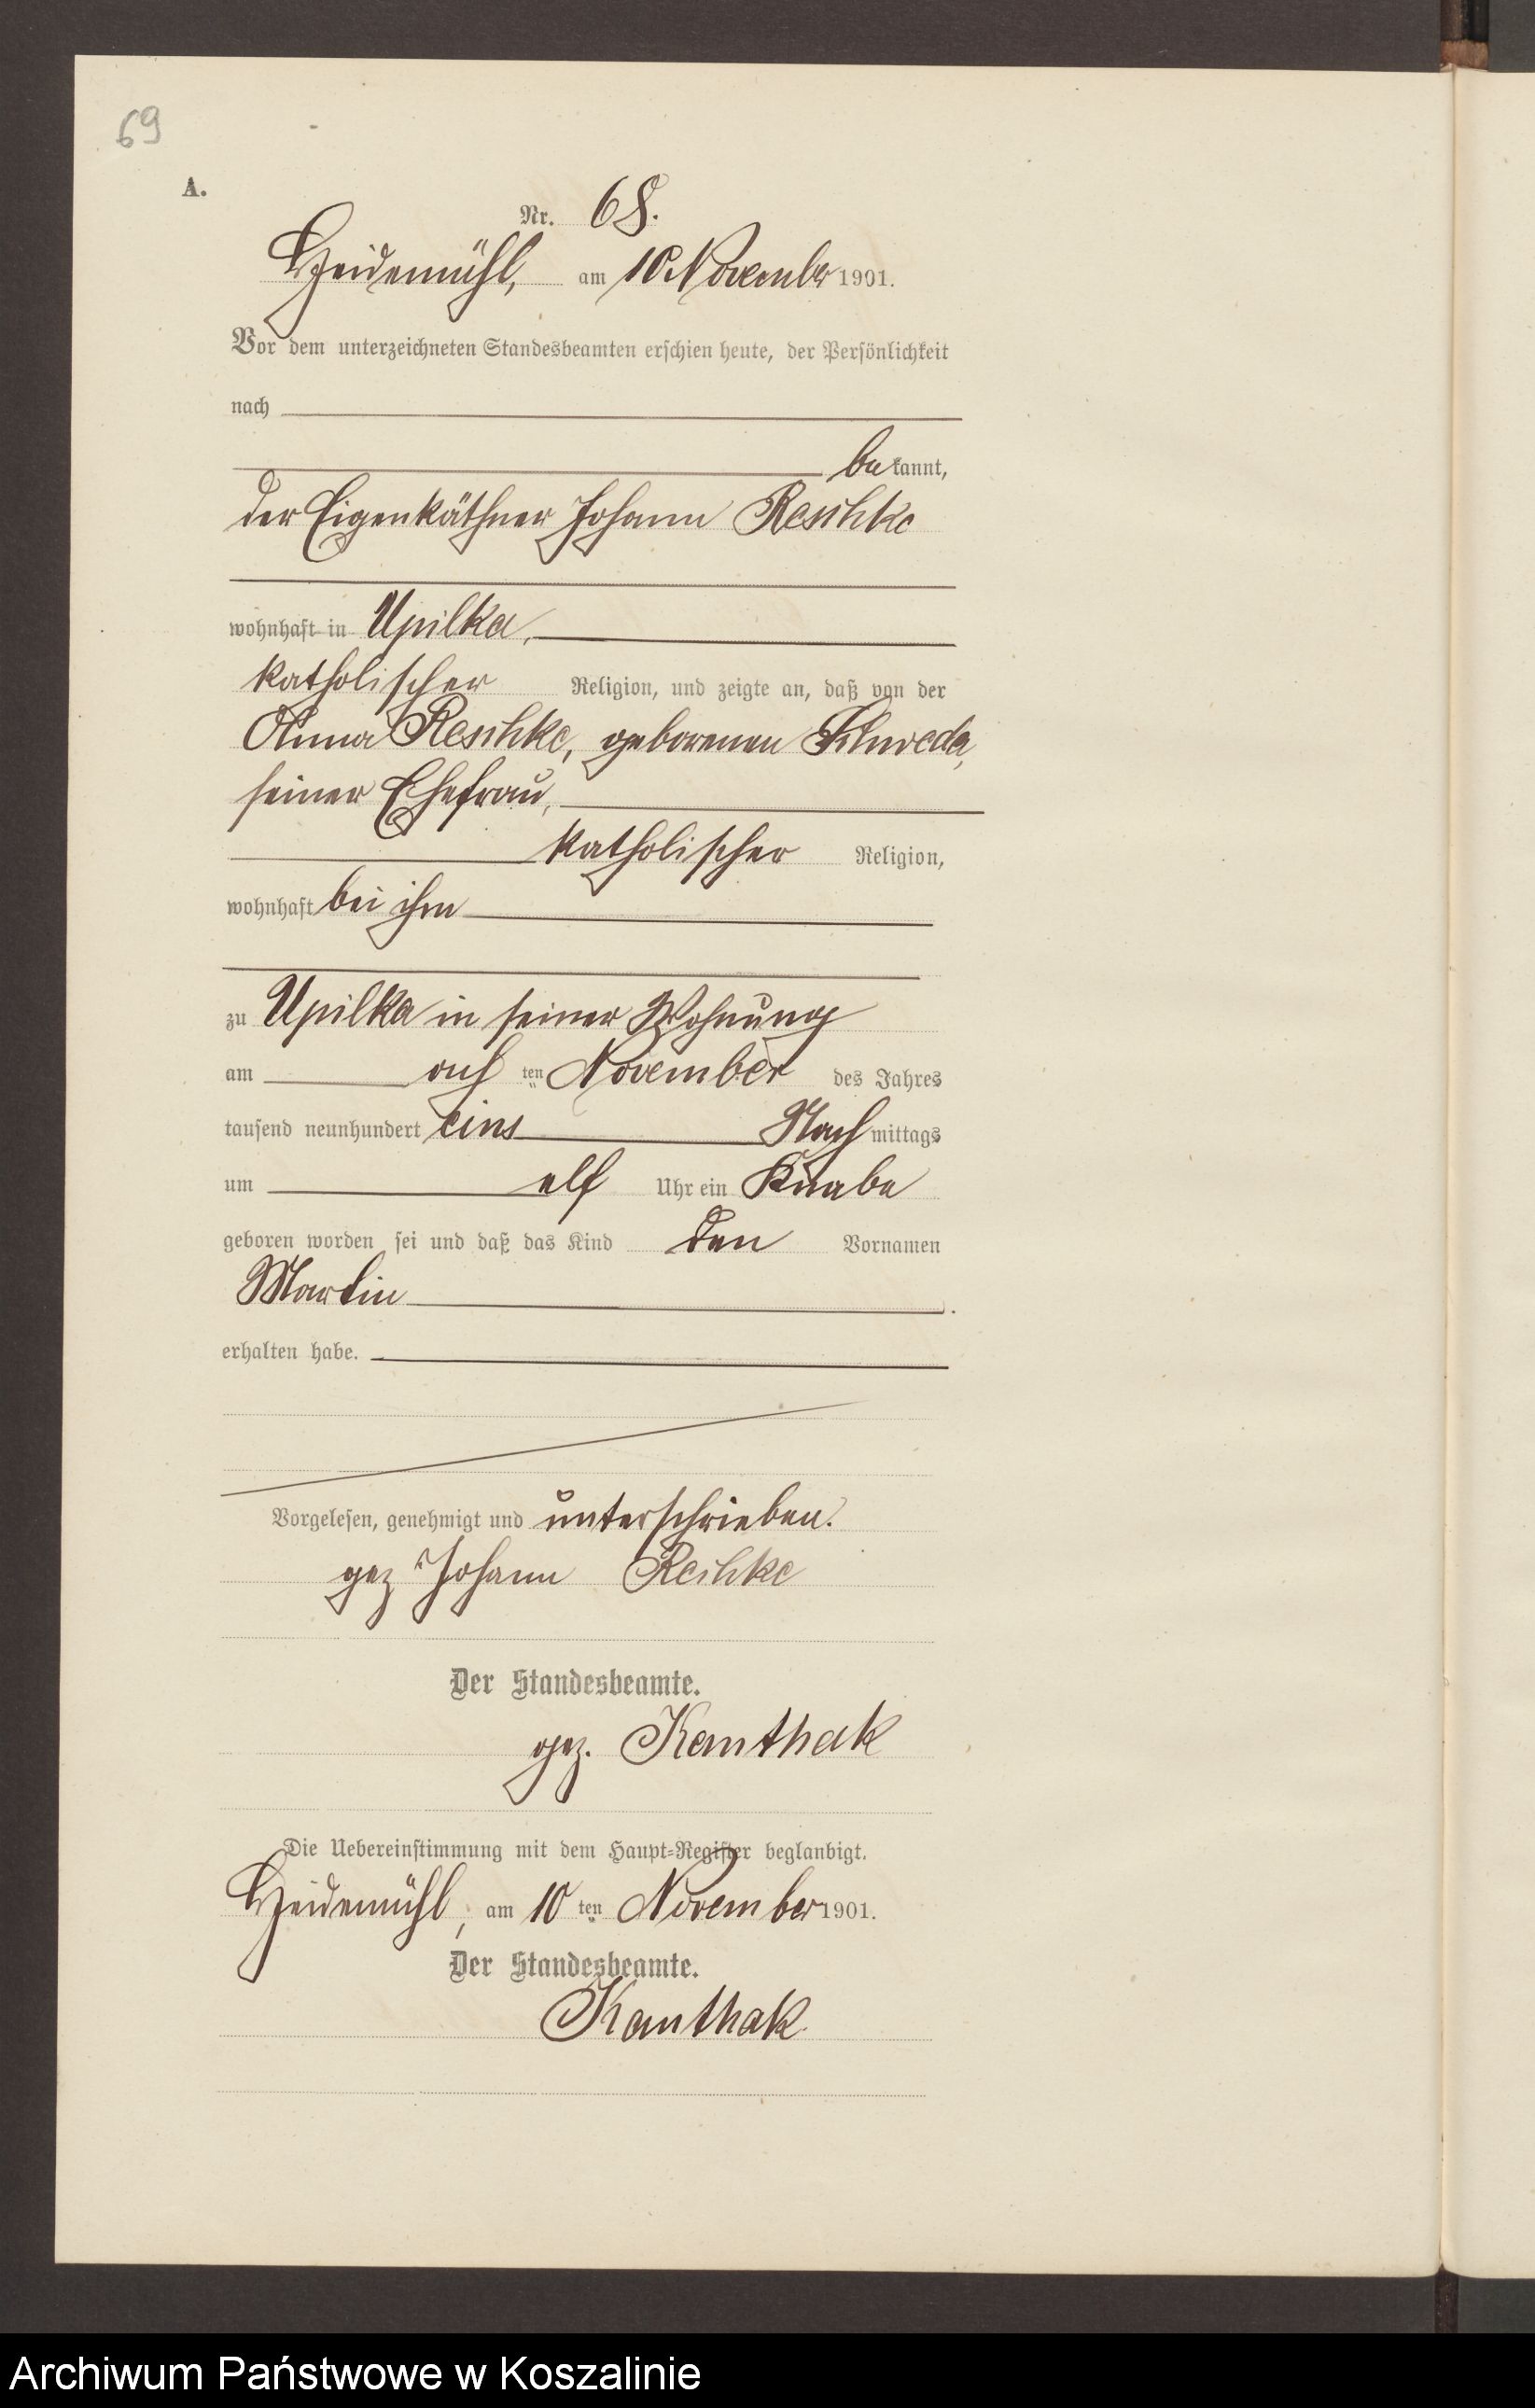 69
A.
Nr. 68.
Heidemühl, am 10 November 1901.
Vor dem unterzeichneten Standesbeamten erschien heute, der Persönlichkeit
nach
bekannt,
der Eigenkäthner Johann Reschke
wohnhaft in Upilka,
katholischer Religion, und zeigte an, daß von der
Anna Reschke, geborenen Schweda,
seiner Ehefrau,
katholischer Religion,
wohnhaft bei ihm
zu Upilka in seiner Wohnung
am ach ten November des Jahres
tausend neunhundert eins Nachmittags
um elf Uhr ein Knabe
geboren worden sei und daß das Kind den Vornamen
Martin
erhalten habe.
Vorgelesen, genehmigt und unterschrieben.
gez Johann Reschke
Der Standesbeamte.
gez. Kanthak
Die Uebereinstimmung mit dem Haupt-Register beglaubigt.
Heidemühl, am 10 ten November 1901.
Der Standesbeamte.
Kanthak
Archiwum Państwowe w Koszalinie